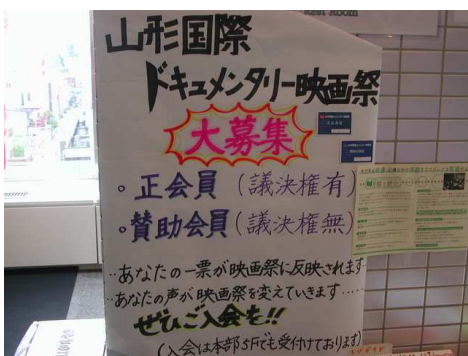 山形国際
ドキュメンタリー映画祭
大募集
。正会員(議決権有)
。賛助会員(議決権無)
…あなたの一票が映画祭に反映されます…
…あなたの声が映画祭を変えていきます……
ぜひご入会も!!
(入会は本部5Fでも受付けております)